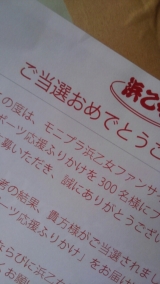 浜乙
ご当選おめでとうご
の度は、モニプラ浜乙女ファンサ
ポーツ応援ふりかけを300名様にプ
募いただき、誠にありがとうござい
考の結果、貴方様がご当選されま
ポーツ応援ふりかけ」をお届け
ならびに浜乙